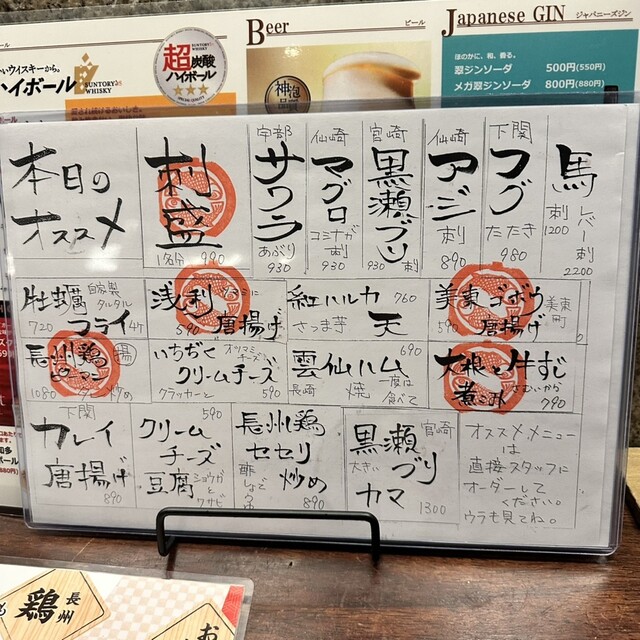 Beer
ビール
Japanese GIN
ジャパニーズジン
ほのかに、和、香る。
翠ジンソーダ 500円(550円)
メガ翠ジンソーダ 800円(880円)
いウイスキーから。
ハイボール
SUNTORY
WHISKY
超炭酸
ハイボール
神泡
品質
本日の
オススメ
刺盛
1名分 990
宇部
サワラ
あぶり
930
仙崎
マグロ
コミナガ
刺
930
宮崎
黒瀬ブリ
930 刺
仙崎
アジ
刺
890
下関
フグ
たたき
980
馬
刺
1200
レバー刺
2200
牡蠣
自家製
タルタル
フライ
720
4ケ
浅利
唐揚げ
590
紅ハルカ 760
さつま芋 天
美東ゴボウ
唐揚げ
590
美東町
長州鶏
1080
炒め
いちぢく
クリームチーズ
クラッカーと 590
雲仙ハム
690
長崎 焼
一度は
食べて
大根と牛すじ
煮こみ
790
下関
カレイ
唐揚げ
890
590
クリーム
チーズ
豆腐
ショウガと
ワサビ
長州鶏
セセリ
炒め
890
黒瀬
宮崎
大きい
ブリ
カマ
1300
オススメメニュー
は
直接スタッフに
オーダーして
ください。
ウラも見てね。
長州
鶏
お